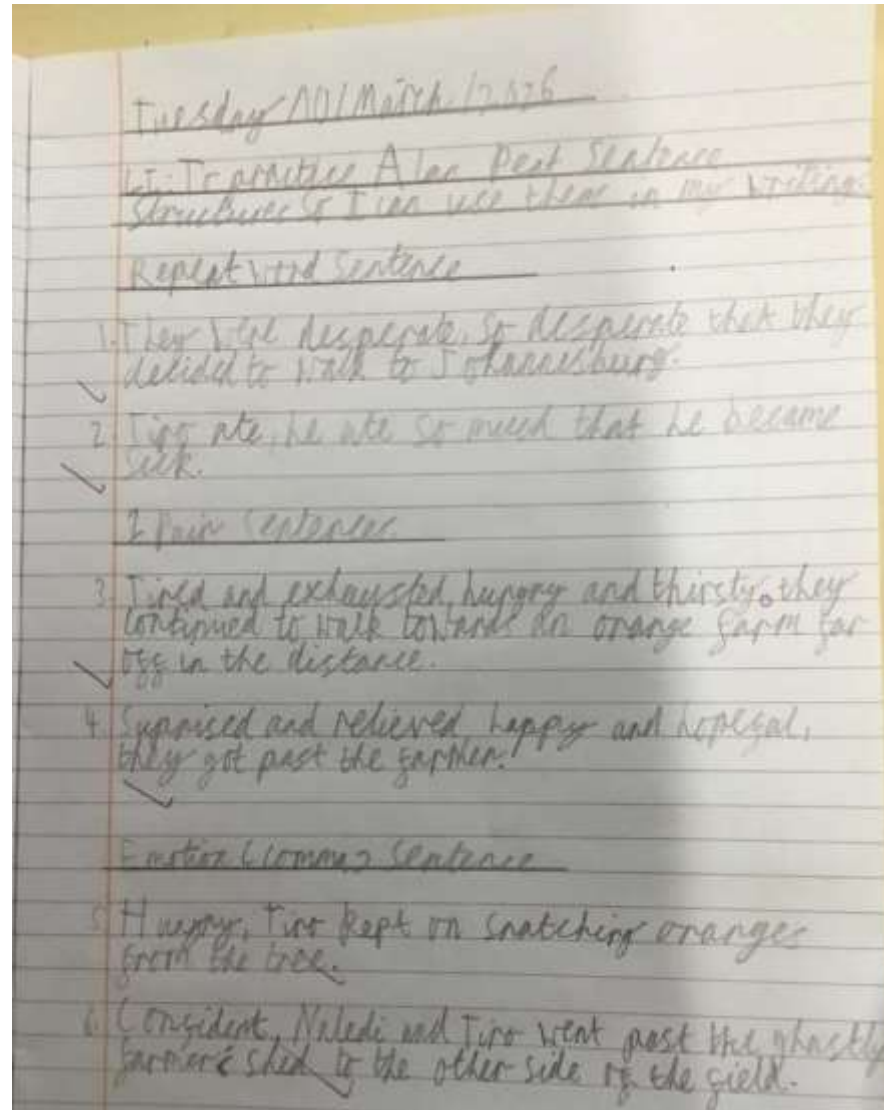 Tuesday /10/March/2026
L.I: To practise Alan Peat Sentence
Structures so I can use them in my writing.
Repeat word Sentence
1. They were desperate, so desperate that they
decided to walk to Johannesburg.
2. Tiro ate, he ate so much that he became
sick.
2 Pair Sentences
3. Tired and exhausted, hungry and thirsty, they
continued to walk towards an orange farm far
off in the distance.
4. Suprised and relieved, happy and hopeful,
they got past the farmer.
Emotion (comma) Sentence
5. Hungry, Tiro kept on snatching oranges
from the tree.
6. Confident, Naledi and Tiro went past the ghastly
farmer's shed to the other side of the field.